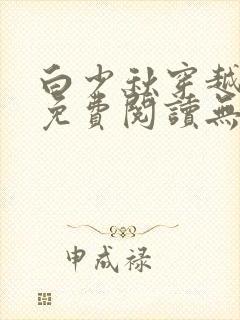 白少秋穿越
免費閱讀無
申成禄